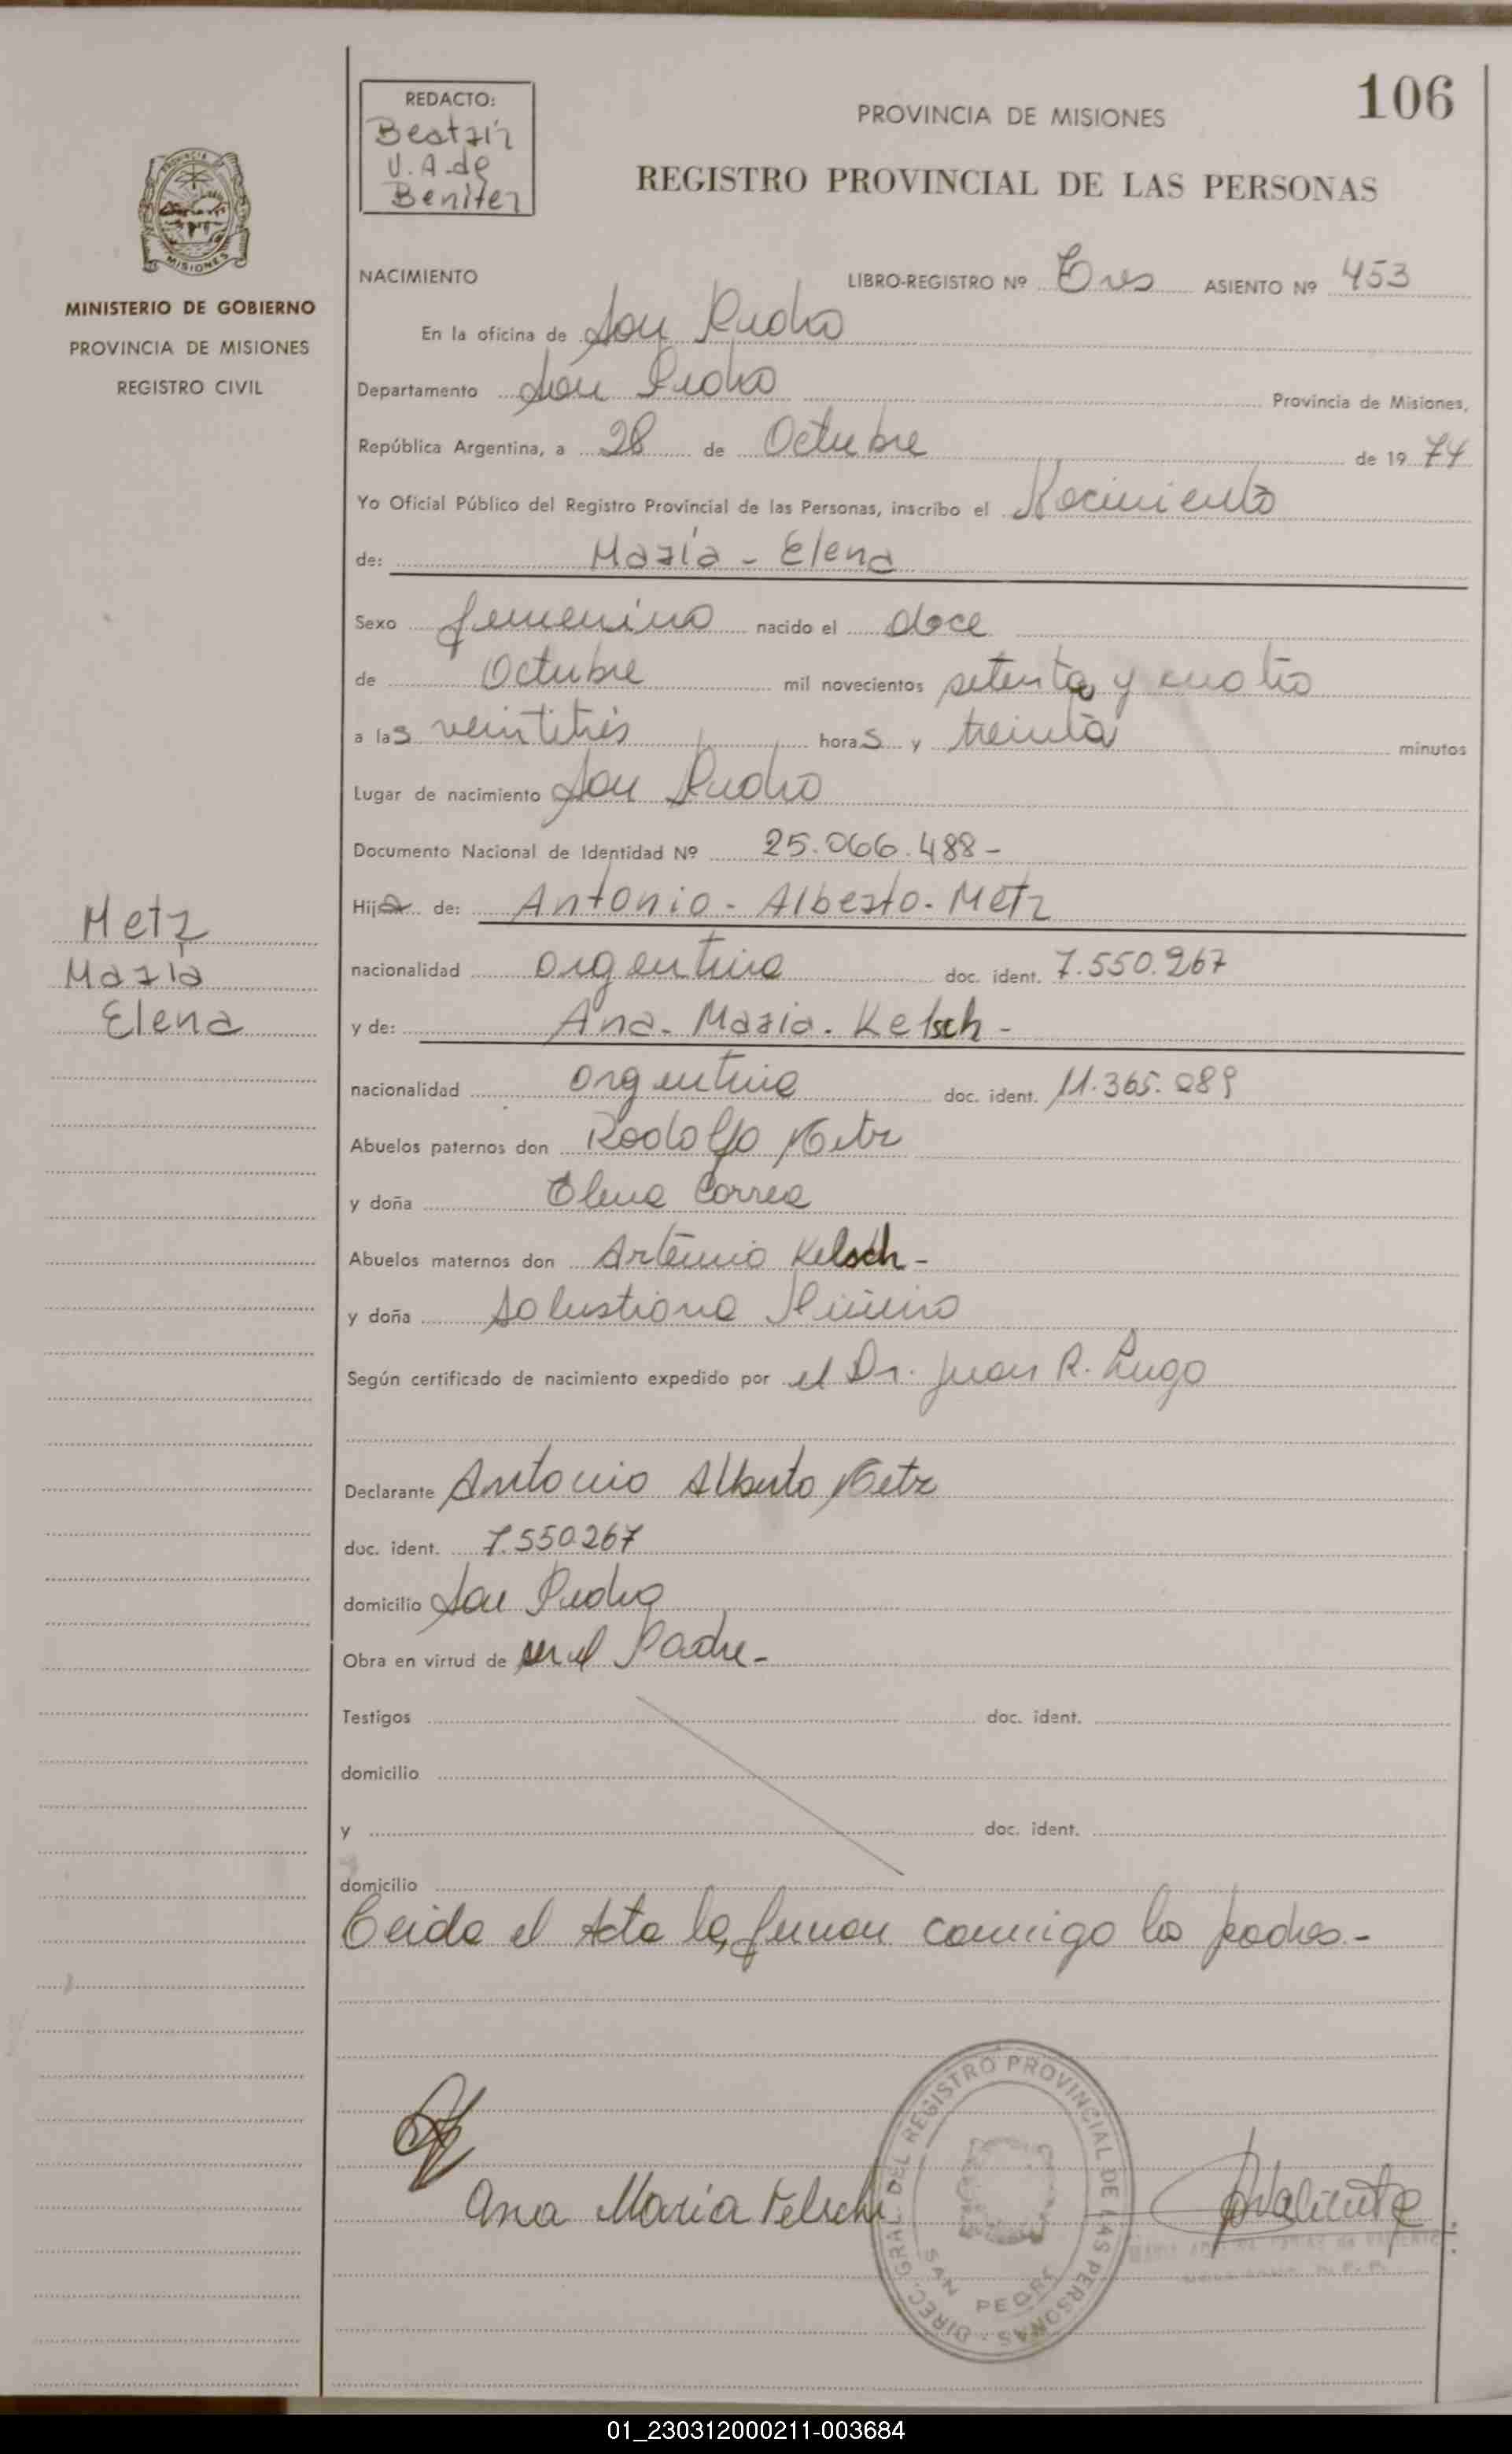 106
REDACTO:
Beatriz
V. A. de
Benitez
PROVINCIA DE MISIONES
REGISTRO PROVINCIAL DE LAS PERSONAS
MISIONES
MINISTERIO DE GOBIERNO
PROVINCIA DE MISIONES
REGISTRO CIVIL
NACIMIENTO
LIBRO-REGISTRO Nº Tres ASIENTO Nº 453
En la oficina de San Pedro
Departamento San Pedro Provincia de Misiones,
República Argentina, a 28 de Octubre de 1974
Yo Oficial Público del Registro Provincial de las Personas, inscribo el Nacimiento
de: María - Elena
Sexo femenino nacido el doce
de Octubre mil novecientos setenta y cuatro
a las veintitrés horas y treinta minutos
Lugar de nacimiento San Pedro
Documento Nacional de Identidad Nº 25.066.488-
Hija de: Antonio - Alberto - Metz
Metz
María
Elena
nacionalidad argentina doc. ident. 7.550.267
y de: Ana - María - Kelsch -
nacionalidad argentina doc. ident. 11.365.089
Abuelos paternos don Rodolfo Metz
y doña Elena Correa
Abuelos maternos don Artemio Kelsch -
y doña Salustiana
Según certificado de nacimiento expedido por el Dr. Juan R. Lugo
Declarante Antonio Alberto Metz
doc. ident. 7.550.267
domicilio San Pedro
Obra en virtud de ser el Padre -
Testigos doc. ident.
domicilio
y doc. ident.
domicilio
Leida el Acta la firman conmigo los padres.-
Ana María Kelsch
DIREC. GRAL. DEL REGISTRO PROVINCIAL DE LAS PERSONAS -
SAN PEDRO
01_230312000211-003684